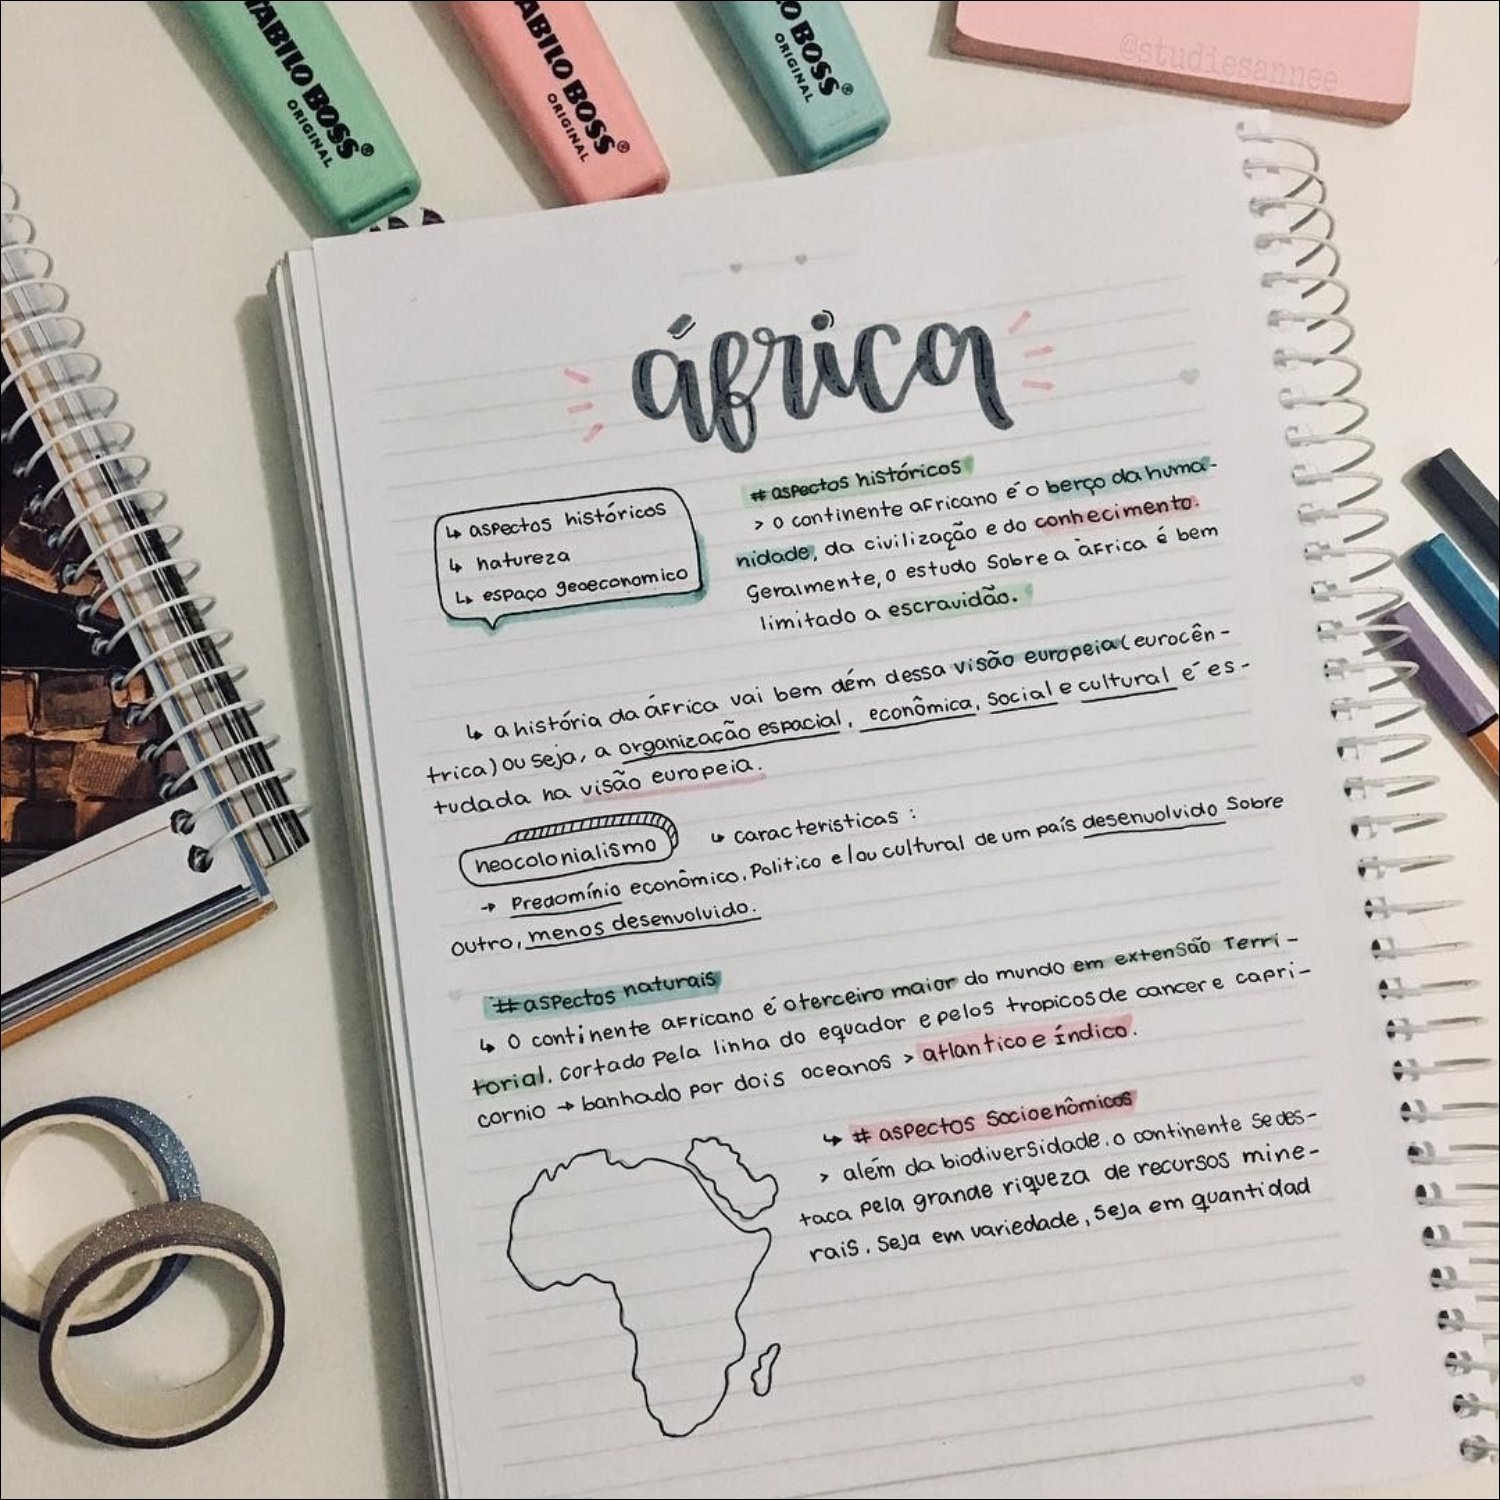 STABILO BOSS®
ORIGINAL
STABILO BOSS®
ORIGINAL
BOSS®
ORIGINAL
@studiesannee
áfrica
↳ aspectos históricos
↳ natureza
↳ espaço geoeconomico
# aspectos históricos
> o continente africano é o berço da huma-
nidade, da civilização e do conhecimento.
Geralmente, o estudo sobre a áfrica é bem
limitado a escravidão.
↳ a história da áfrica vai bem dém dessa visão europeia (eurocên-
trica) ou seja, a organização espacial, econômica, social e cultural é es-
tudada na visão europeia.
neocolonialismo
↳ caracteristicas :
→ Predomínio econômico, Politico e/ou cultural de um país desenvolvido sobre
outro, menos desenvolvido.
# aspectos naturais
↳ O continente africano é o terceiro maior do mundo em extensão Terri-
torial. cortado pela linha do equador e pelos tropicos de cancer e capri-
cornio → banhado por dois oceanos > atlantico e índico.
↳ # aspectos socioenômicos
> além da biodiversidade. o continente se des-
taca pela grande riqueza de recursos mine-
rais. seja em variedade, seja em quantidad